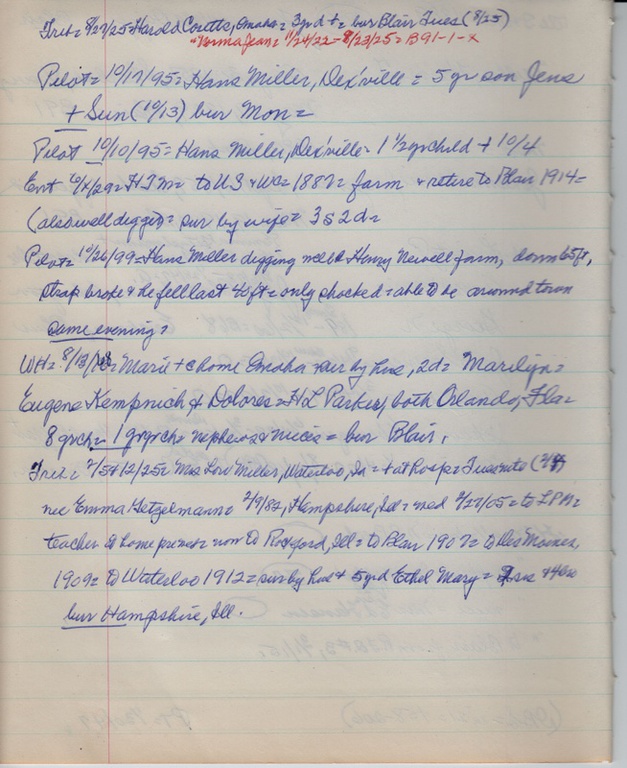 Trib= 8/27/25= Harold Coutts, Omaha= 3yr d += bur Blair Tues (8/25)
"Norma Jean= 11/24/22-8/23/25= B91-1-X
Pilot= 10/17/95= Hans Miller, Dex'ville = 5 yr son Jens
+ Sun (10/13) bur Mon=
Pilot 10/10/95= Hans Miller, Dex'ville= 1 1/2 yr child + 10/4
Ent = to US & WC= 1887= farm & retire to Blair 1914=
(also well digging)= sur by wife= 3s 2d=
Pilot= 10/26/99= Hans Miller digging well Henry Newell farm, down 65 ft,
strap broke & he fell last 40 ft= only shocked= able to be around town
same evening=
WH= = Marie + c home Omaha = sur by hus, 2d= Marilyn=
Eugene Kempnich & Dolores= HL Parker, both Orlando, Fla=
8 grch= 1 grgrch= nephews & nieces= bur Blair.
Trib= 2/5+12/25= Mrs Miller, Waterloo, Ia= + at Hosp= Tues nite
nee Emma Getzelmann= 2/9/82, Hampshire, Ill= med 2/27/05= to LPM=
teacher = now to Rockford, Ill= to Blair 1907= to Des Moines,
1909= to Waterloo 1912= sur by hus & 5 yr d Ethel Mary= & 4 bro
bur Hampshire, Ill.